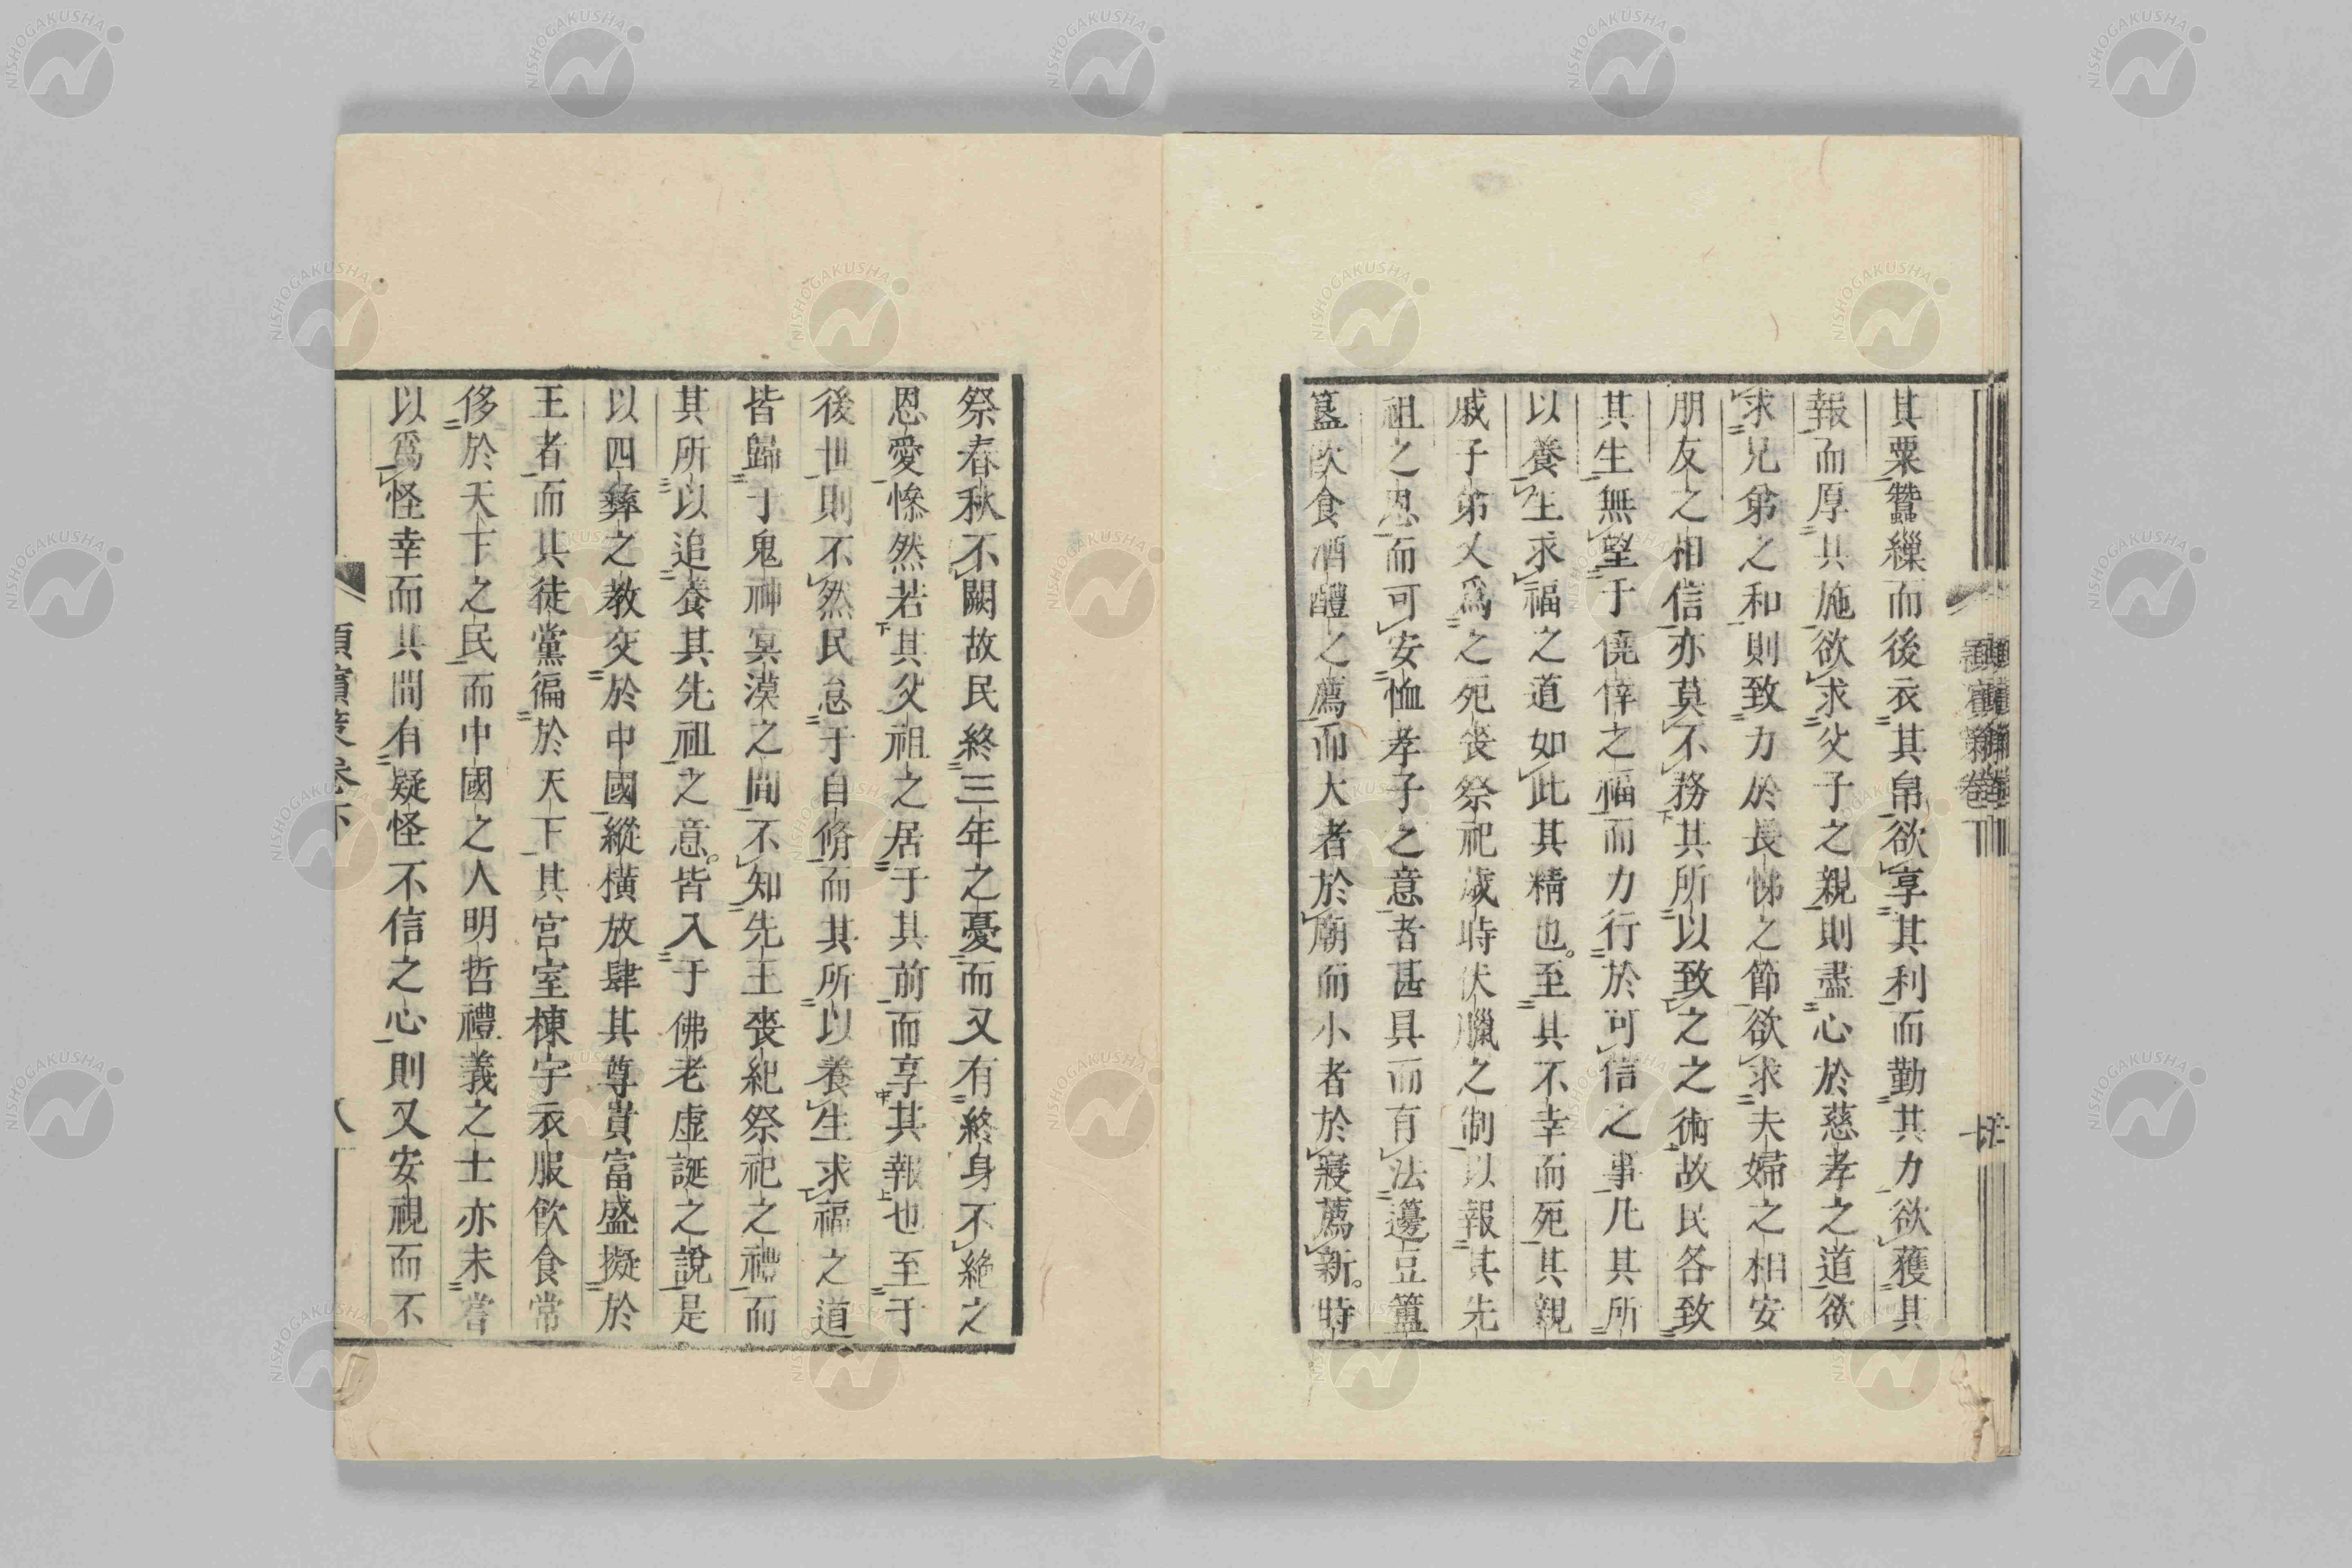 其粟蠶繅而後衣其帛欲享其利而勤其力欲獲其
報而厚其施欲求父子之親則盡心於慈孝之道欲
求兄弟之和則致力於長悌之節欲求夫婦之相安
朋友之相信亦莫不務其所以致之之術故民各致
其生無望于僥倖之福而力行於可信之事凡其所
以養生求福之道如此其精也。至其不幸而死其親
戚子弟又爲之死喪祭祀歲時伏臘之制以報其先
祖之恩而可安恤孝子之意者甚具而有法籩豆簠
簋飲食酒醴之薦而大者於廟而小者於寢薦新。時
祭春秋不闕故民終三年之憂而又有終身不絕之
恩愛慘然若其父祖之居于其前而享其報也至于
後世則不然民怠于自脩而其所以養生求福之道
皆歸于鬼神冥漠之間不知先王喪紀祭祀之禮而
其所以追養其先祖之意。皆入于佛老虛誕之說是
以四彝之教交於中國縱橫放肆其尊貴富盛擬於
王者而其徒黨徧於天下其宮室棟宇衣服飲食常
侈於天下之民而中國之人明哲禮義之士亦未嘗
以爲怪幸而其間有疑怪不信之心則又安視而不
潁濱策卷下
NISHOGAKUSHA